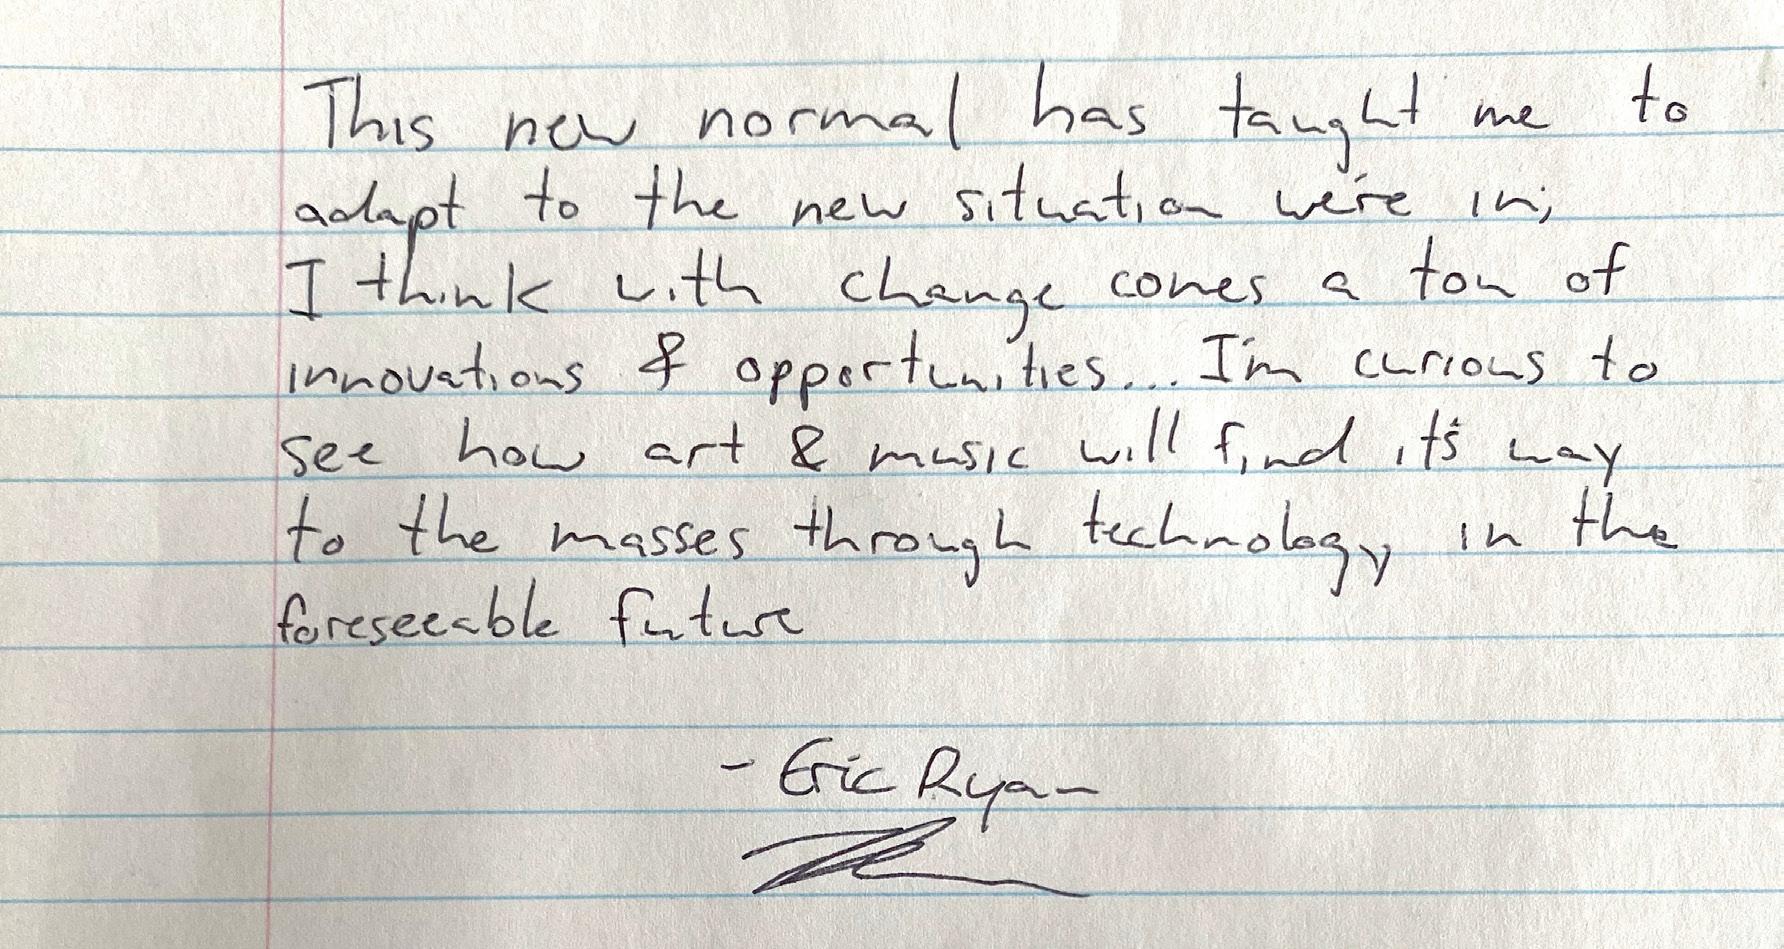 This new normal has taught me to
adapt to the new situation we're in;
I think with change comes a ton of
innovations & opportunities... I'm curious to
see how art & music will find it's way
to the masses through technology in the
foreseeable future
- Eric Ryan